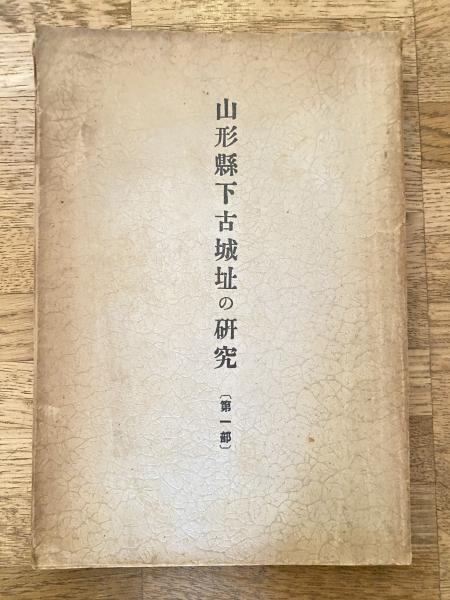 山形縣下古城址の研究
〔第一部〕